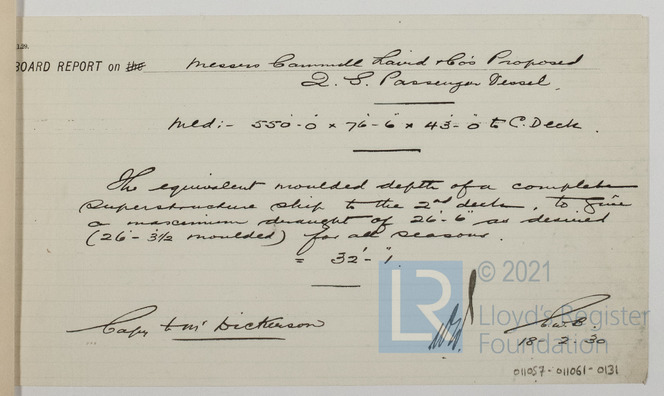 BOARD REPORT on the Messrs Cammell Laird & Co's Proposed
Q. S. Passenger Vessel.
Mld:- 550'-0 x 76'-6 x 43'-0 to C. Deck.
The equivalent moulded depth of a complete
superstructure ship to the 2nd deck, to give
a maximum draught of 26'-6" as desired
(26'-3½ moulded) for all seasons.
= 32'-1".
Copy to Mr Dickerson
C.W.B.
18-2-30
© 2021
LR
Lloyd's Register
Foundation
011057-011061-0131